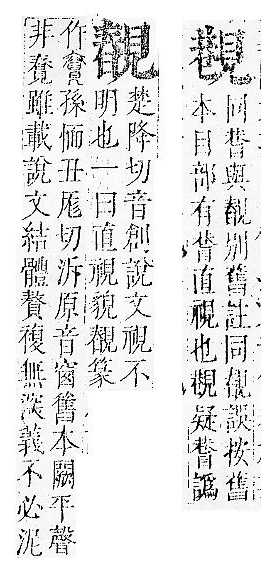 同與別舊註同誤按舊
本目部有直視也疑譌
楚降切音創說文視不
明也一曰直視貌篆
作孫愐丑厖切泝原音窗舊本闕平聲
非雖載說文結體贅複無深義不必泥